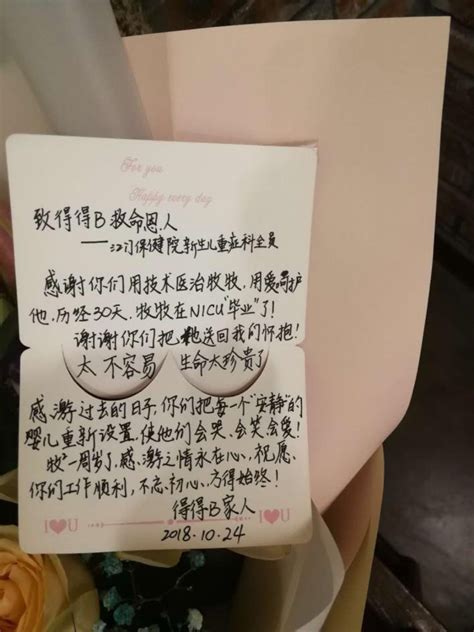 For you
Happy every day
致得得B救命恩人
——江门保健院新生儿重症科全员
感谢你们用技术医治牧牧,用爱呵护
他,历经30天,牧牧在NICU“毕业”了!
谢谢你们把他送回我的怀抱!
太不容易 生命太珍贵了
感激过去的日子,你们把每一个“安静”的
婴儿重新设置,使他们会哭、会笑会爱!
牧一周岁了,感激之情永在心,祝愿、
你们工作顺利,不忘初心,方得始终!
得得B家人
2018.10.24
I U
I U